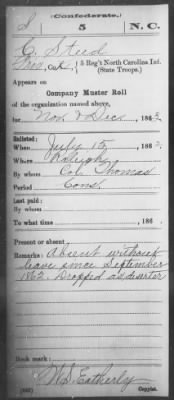 (Confederate.)
S 5 N.C.
C. Steed
Priv, Co. K, 5 Reg't North Carolina Inf.
(State Troops.)
Appears on
Company Muster Roll
of the organization named above,
for Nov. & Dec., 1862.
Enlisted:
When July 15, 1862.
Where Raleigh
By whom Col. Thomas
Period Cons.
Last paid:
By whom
To what time , 186 .
Present or absent
Remarks: Absent without
leave since September
1862. Dropped as deserter
Book mark:
(642) Copyist.